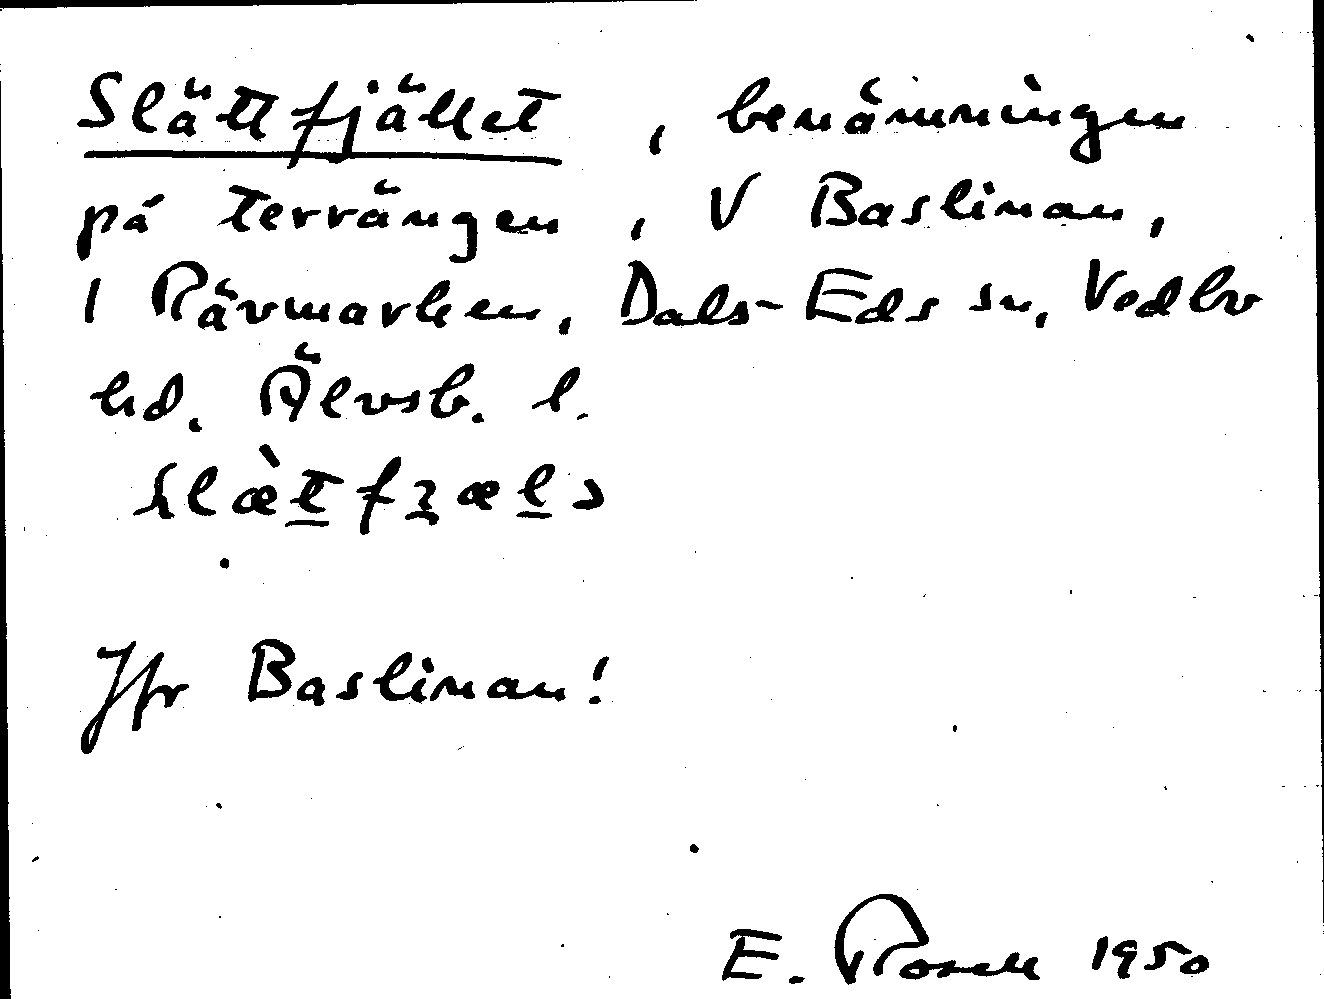 Slättfjället, benämningen
på terrängen, V Baslinan,
I Rävmarken, Dals-Eds sn, Vedbo
hd. Älvsb. l.
slæ̀tfʒælə
Jfr Baslinan!
E. Rosell 1950